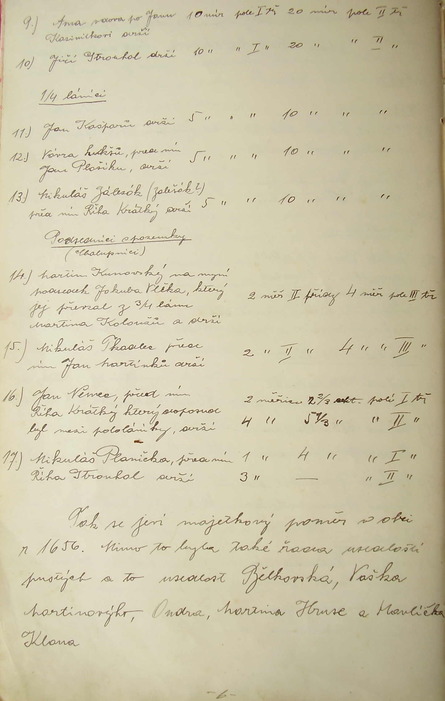 9.) Anna vdova po Janu 10 měr pole I tř 20 měr pole II tř
Kazmichovi drží
10) Jiří Strouhal drží 10 " " I " 20 " " II "
1/4 láníci
11.) Jan Kašparů drží 5 " " " 10 " " "
12.) Vávra , před ním 5 " " " 10 " " "
Jan Plošiku, drží
13.) Mikuláš Zálesák (Zalešákt) 5 " " " 10 " " "
před ním Říha Krátký drží
Podsedníci s pozemky
(Chalupníci)
14.) Martin Kunovský na nyní
podsedek Jakuba Vlčka, který 2 měř II třídy 4 měř pole III tř
jej převzal z 3/4 lánu
Martina a drží
15.) Mikuláš před 2 " II " 4 " " III "
ním Jan Martinků drží
16.) Jan Nemec, před ním 2 měřice 2 2/3 pole I tř
Říha Krátký který 4 " 5 1/3 " " II "
byl mezi pololáníky, drží
17.) Mikuláš Planička, před ním 1 " 4 " " I "
Říha Strouhal drží 3 " — " II "
Tak se jeví majetkový poměr v obci
r 1656. Mimo to byla také řada usedlostí
pustých a to usedlost Bělkovská, Vaška
Martinových, Ondra, Martina Hruse a Havlíčka
Klana
-6-